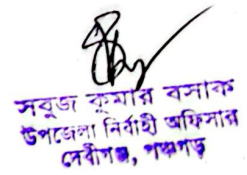 সবুজ কুমার বসাক
উপজেলা নির্বাহী অফিসার
দেবীগঞ্জ, পঞ্চগড়